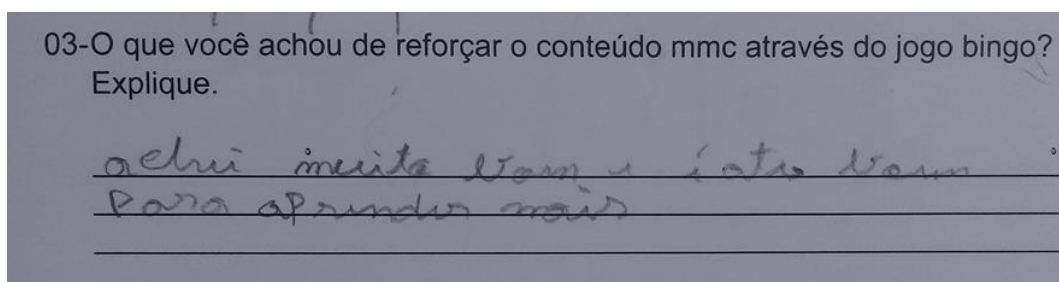 03-O que você achou de reforçar o conteúdo mmc através do jogo bingo?
Explique.
achui muito bom e bom
Para aprender mais